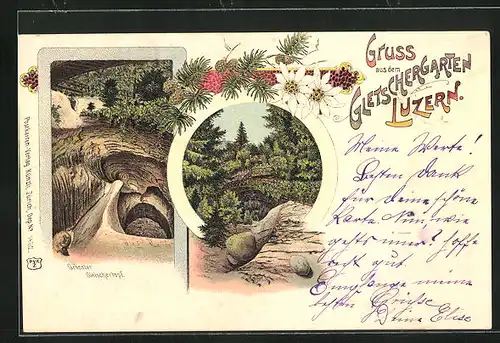 Gruss
aus dem
Gletschergarten
Luzern.
Meine Werte!
Besten Dank
für deine schöne
Karte Nun wie
gehts immer? hoffe
recht gut
Empfange meine
besten Grüsse
Deine Elise
Grösster
Gletschertopf.
Künzli, Zürich